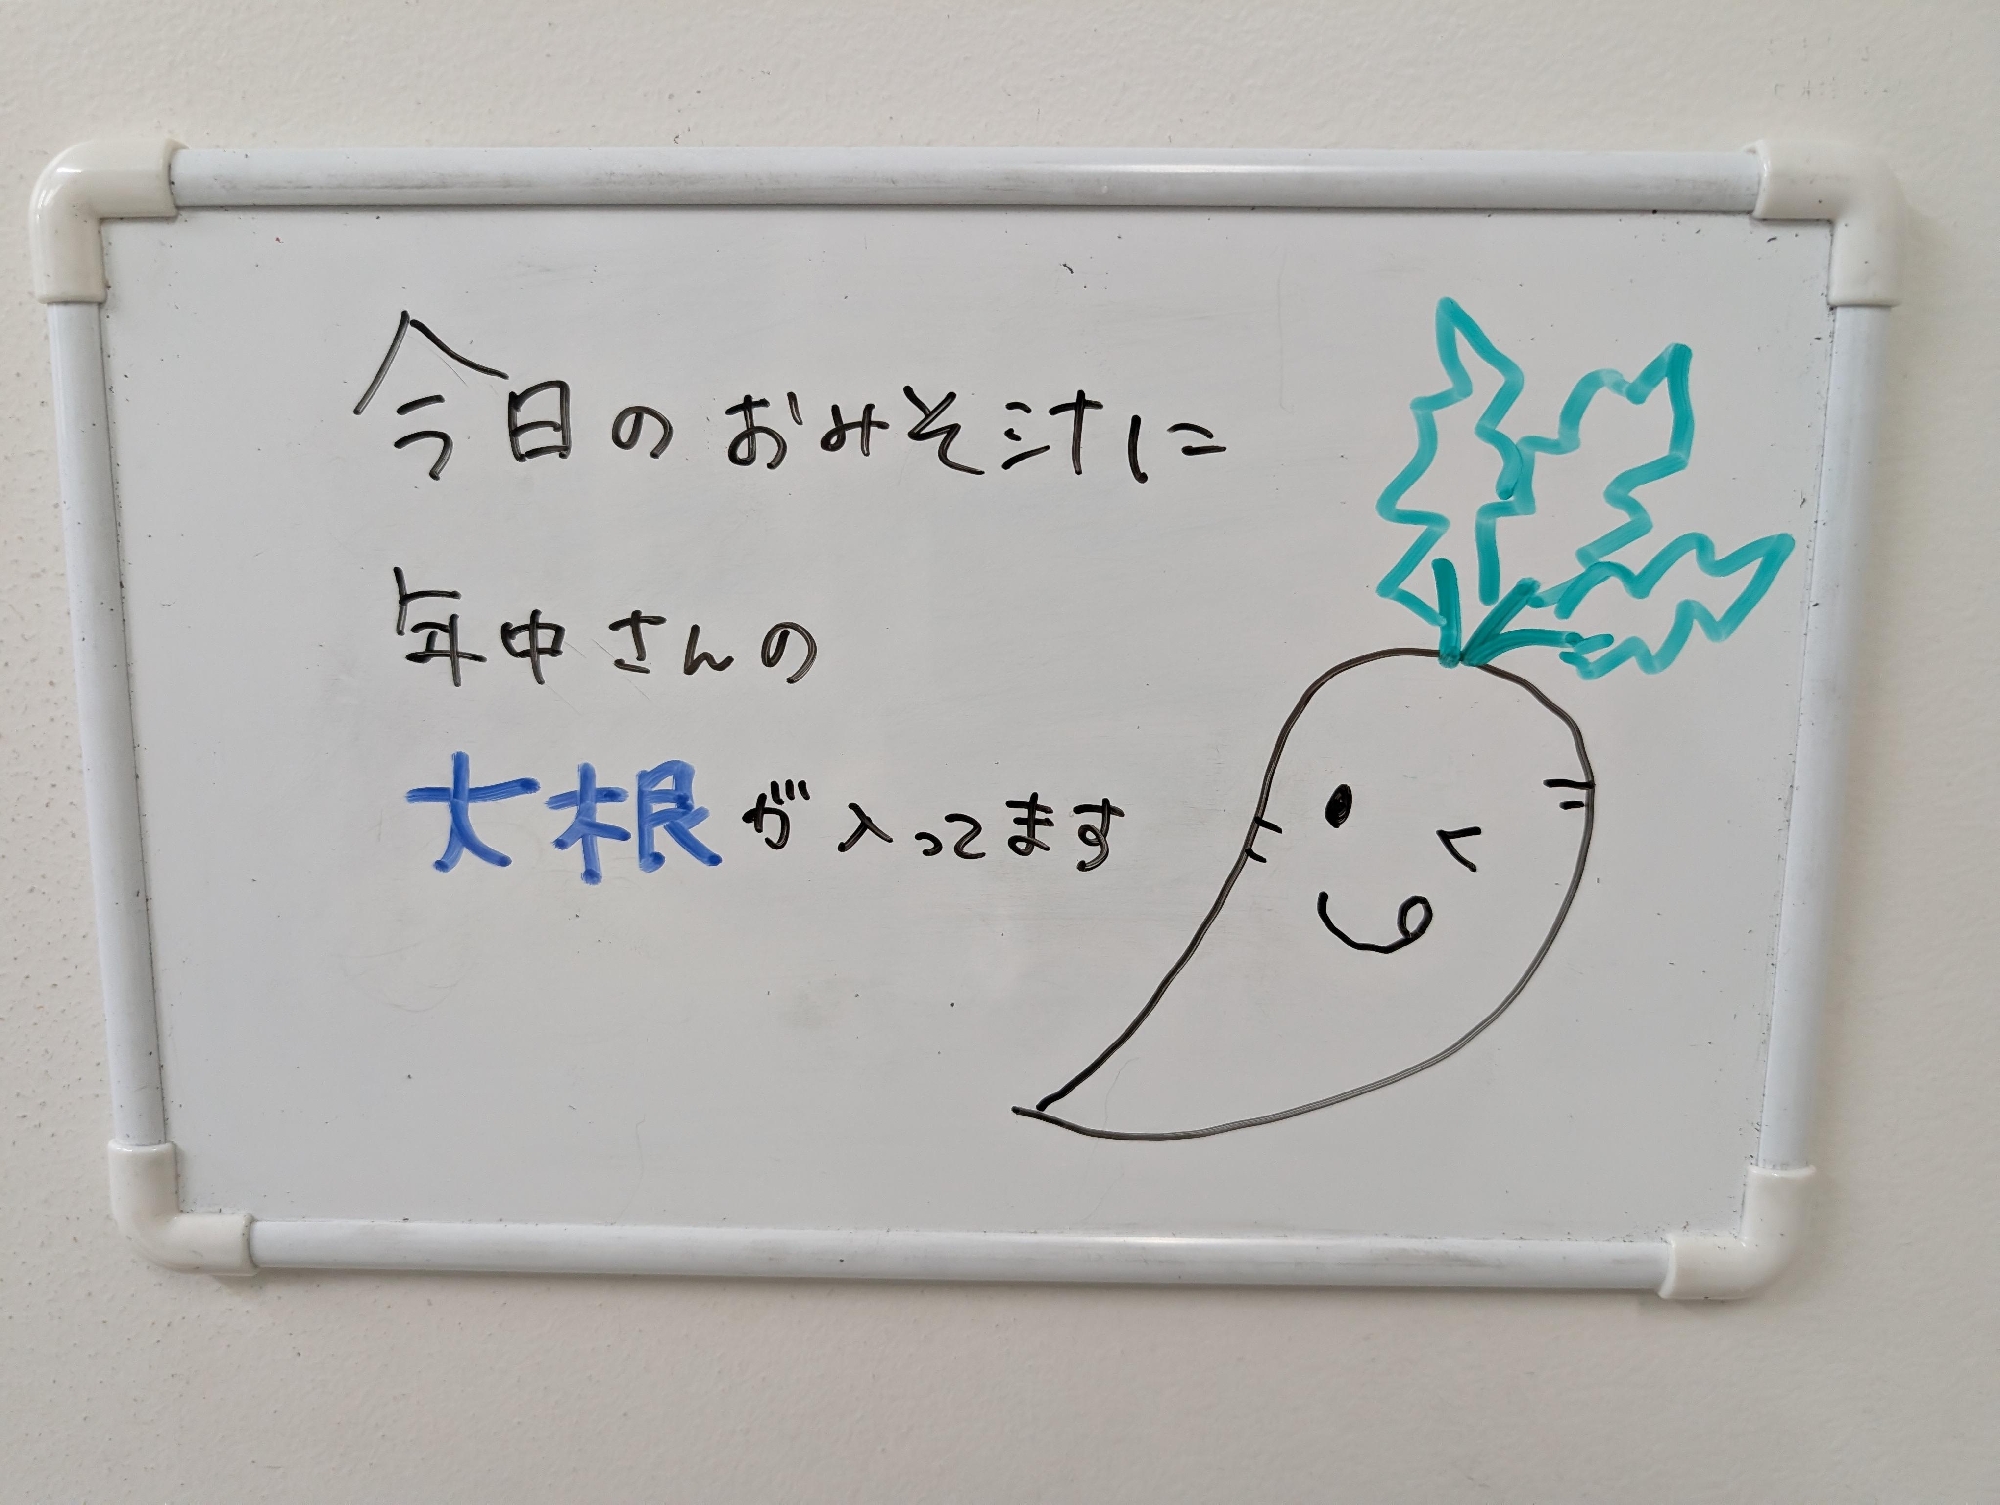 今日のおみそ汁に
年中さんの
大根が入ってます